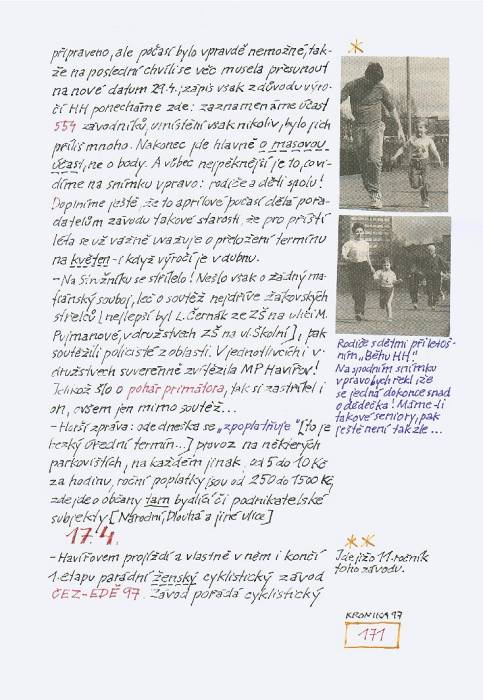 připraveno, ale počasí bylo vpravdě nemožné, tak-
že na poslední chvíli se věc musela přesunout
na nové datum 29.4.; zápis však z důvodu výro-
čí HH ponecháme zde: zaznamenáme účast
554 závodníků, umístění však nikoliv, bylo jich
příliš mnoho. Nakonec jde hlavně o masovou
účast, ne o body. A vůbec nejpěknější je to, co vi-
díme na snímku vpravo: rodiče a děti spolu!
Doplníme ještě, že to aprílové počasí dělá pořa-
datelům závodu takové starosti, že pro příští
léta se už vážně uvažuje o přeložení termínu
na květen - i když výročí je v dubnu.
- Na Stružníku se střílelo! Nešlo však o žádný ma-
fiánský souboj, leč o soutěž nejdříve žákovských
střelců [nejlepší byl L. Černák ze ZŠ na ulici M.
Pujmanové, v družstvech ZŠ na ul. Školní], pak
soutěžili policisté z oblasti. V jednotlivcích i v
družstvech suverénně zvítězila MP Havířov!
Jelikož šlo o pohár primátora, tak si zastřílel i
on, ovšem jen mimo soutěž...
- Horší zpráva: ode dneška se „zpoplatňuje" [to je
hezký úřední termín...] provoz na některých
parkovištích, na každém jinak, od 5 do 10 Kč
za hodinu, roční poplatky jsou od 250 do 1500 Kč,
zde jde o občany tam bydlící či podnikatelské
subjekty [Národní, Dlouhá a jiné ulice]
17.4.
- Havířovem projíždí a vlastně v něm i končí
1. etapu parádní ženský cyklistický závod
ČEZ-EDĚ 97. Závod pořádá cyklistický
Rodiče s dětmi při letoš-
ním „Běhu HH".
Na spodním snímku
vpravo bych řekl, že
se jedná dokonce snad
o dědečka! Máme-li
takové seniory, pak
ještě není tak zle...
Jde již o 11. ročník
toho závodu.
KRONIKA 97
171